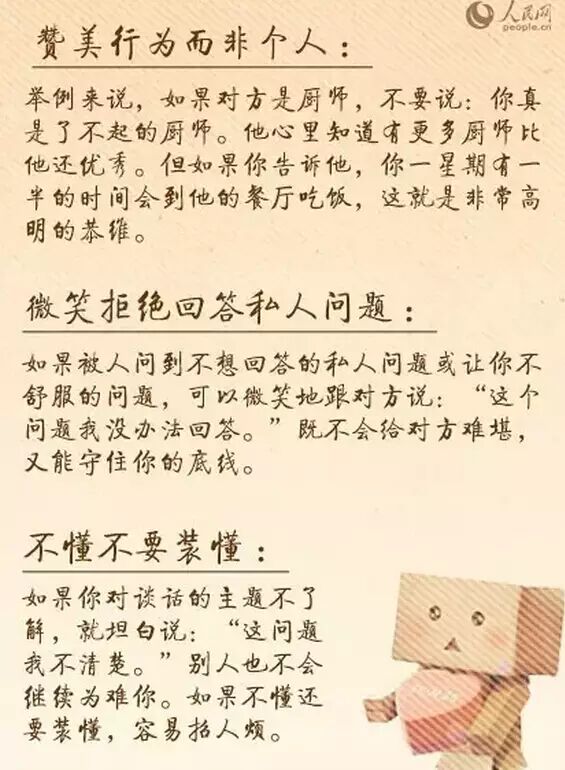 人民网
people.cn
赞美行为而非个人：
举例来说，如果对方是厨师，不要说：你真
是了不起的厨师。他心里知道有更多厨师比
他还优秀。但如果你告诉他，你一星期有一
半的时间会到他的餐厅吃饭，这就是非常高
明的恭维。
微笑拒绝回答私人问题：
如果被人问到不想回答的私人问题或让你不
舒服的问题，可以微笑地跟对方说：“这个
问题我没办法回答。”既不会给对方难堪，
又能守住你的底线。
不懂不要装懂：
如果你对谈话的主题不了
解，就坦白说：“这问题
我不清楚。”别人也不会
继续为难你。如果不懂还
要装懂，容易招人烦。